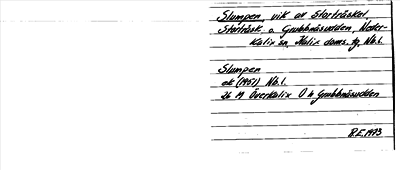 Slumpen, vik av Storträsket,
Storträsk o. Grubbnäsudden, Neder-
Kalix sn, Kalix doms. tg, Nb.l.
Slumpen
ek (1951) Nb.l.
26 M Överkalix Ö h Grubbnäsudden
R.E. 1973